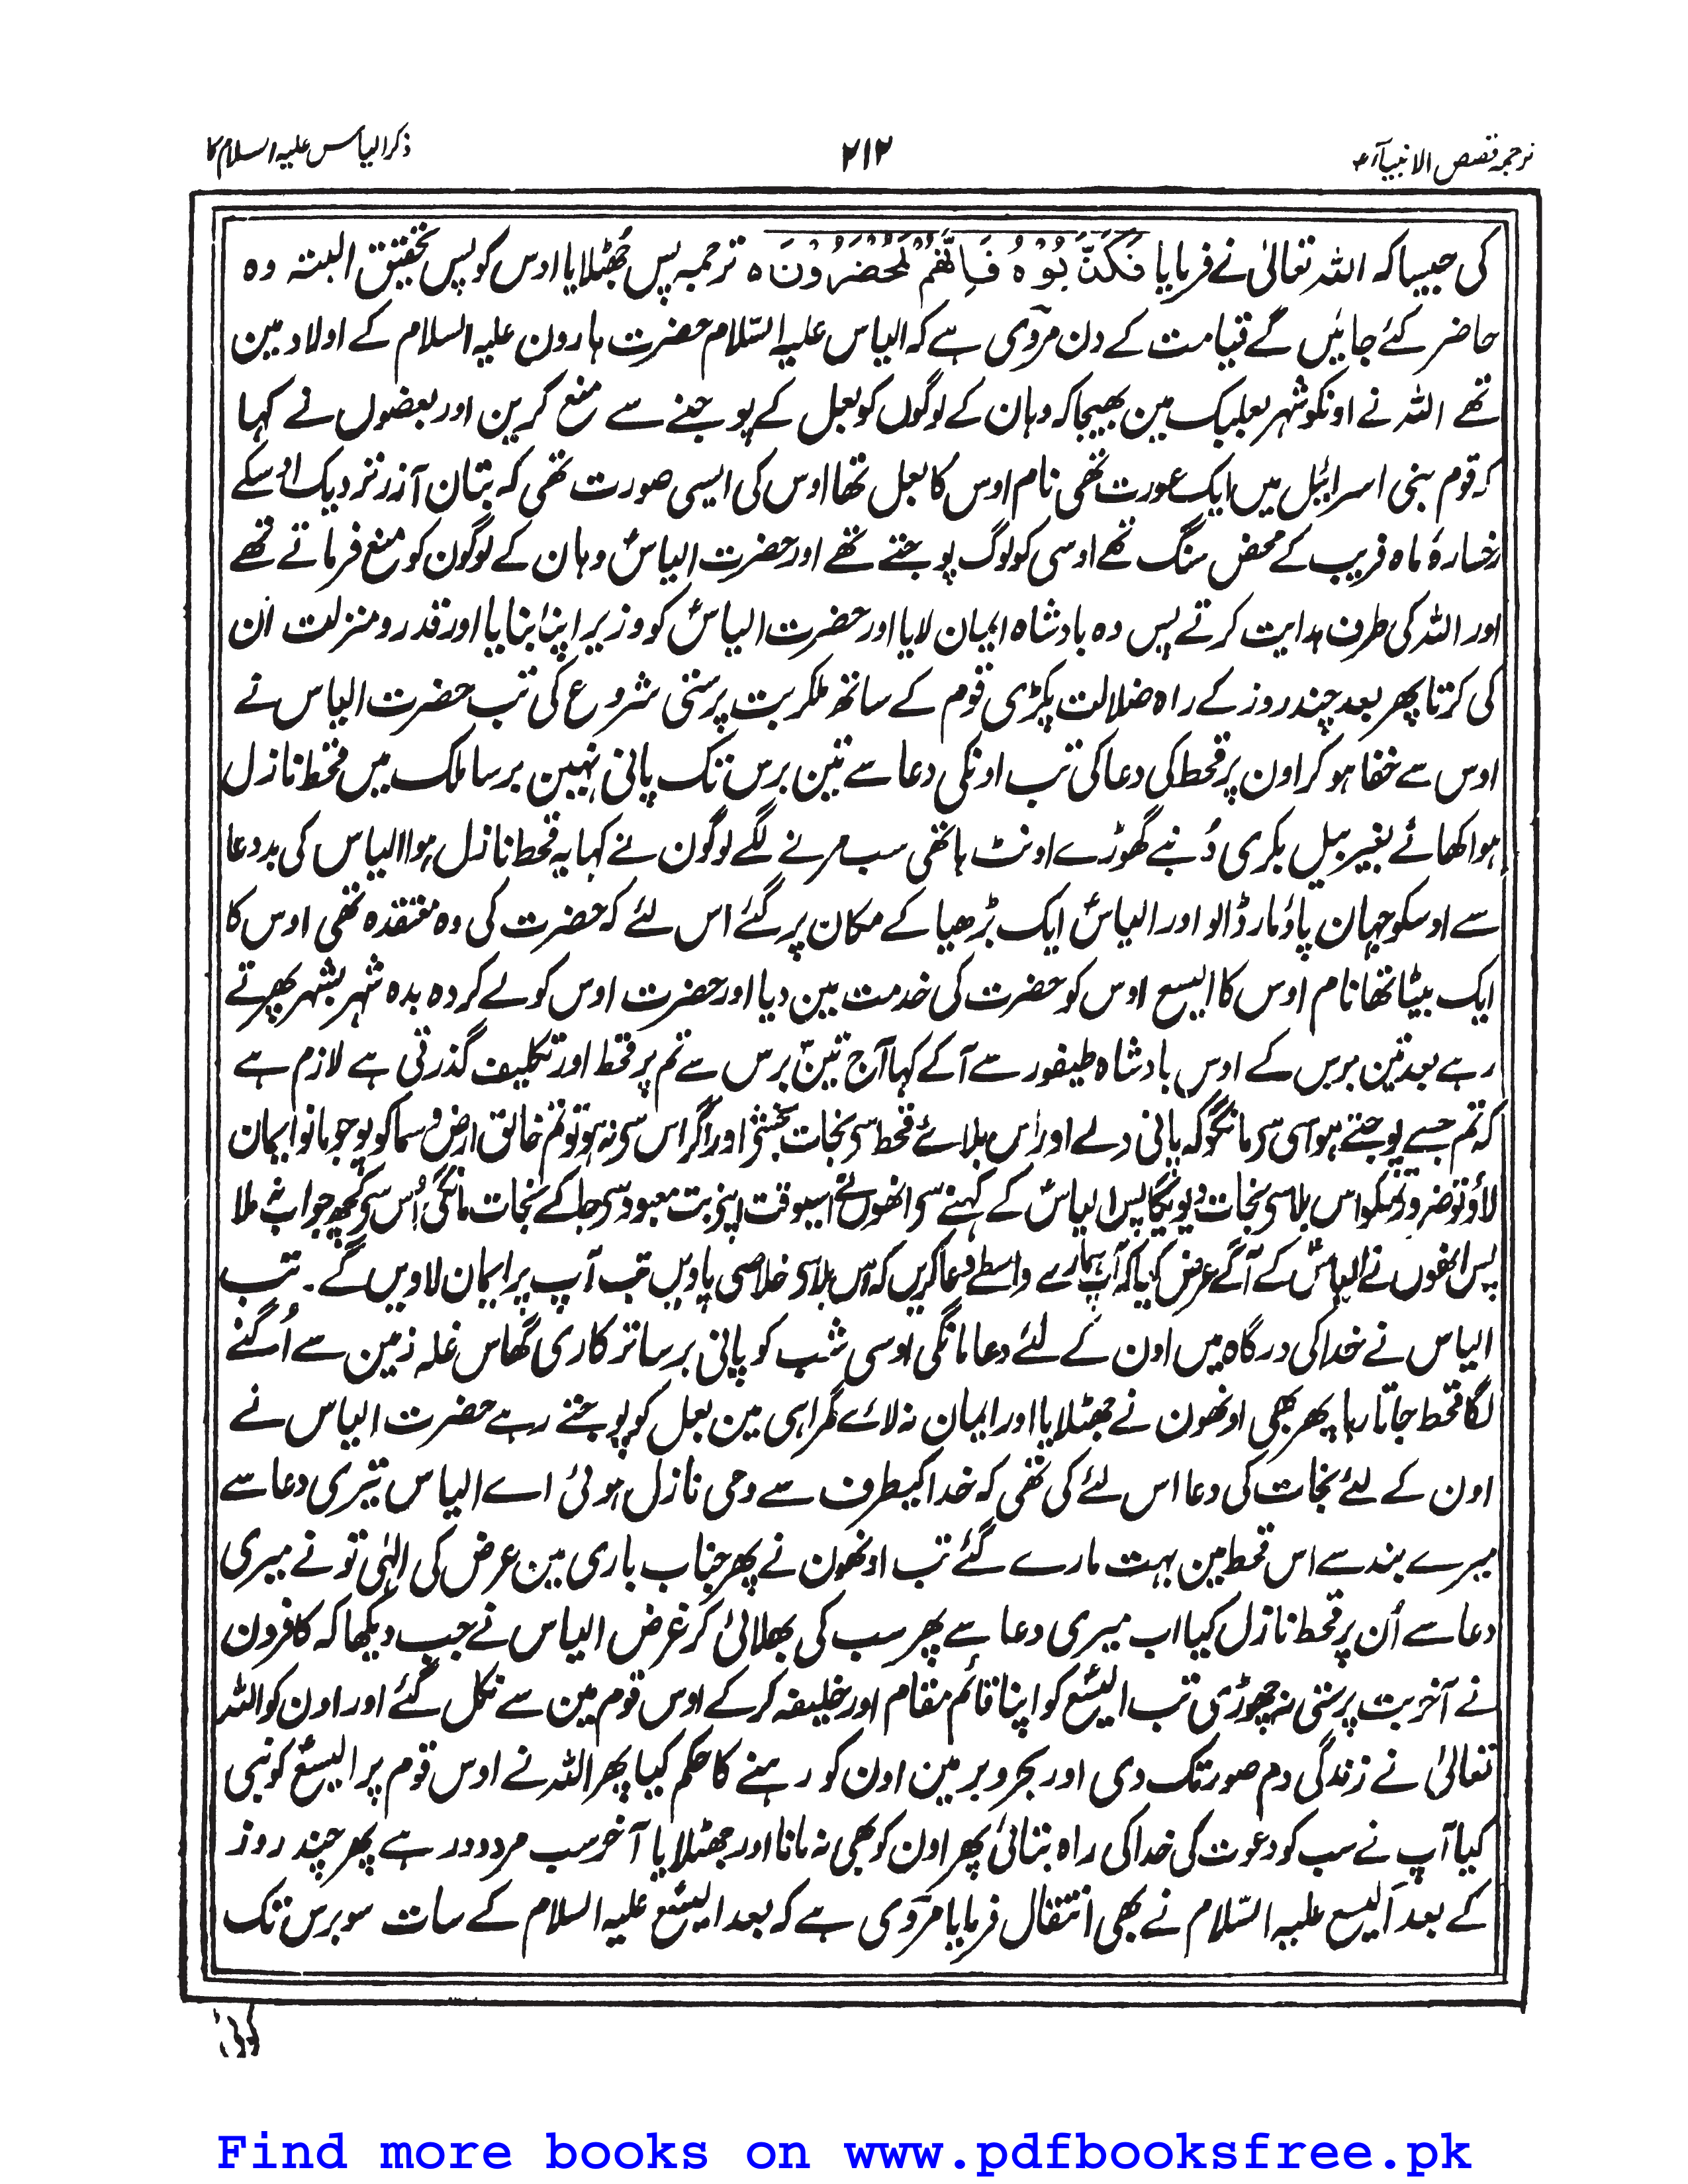 ترجمہ قصص الانبیآء
۲۱۲
ذکر الیاس علیہ السلام کا
کی جیسا کہ اللہ تعالیٰ نے فرمایا فَكَذَّبُوْهُ فَاِنَّهُمْ لَمُحْضَرُوْنَ ہ ترجمہ پس جھٹلایا اوس کو پس تحقیق البتہ وہ
حاضر کئے جائیں گے قیامت کے دن مروی ہے کہ الیاس علیہ السّلام حضرت ہارون علیہ السلام کے اولاد مین
تھے اللہ نے اونکو شہر بعلبک مین بھیجا کہ وہان کے لوگوں کو بعل کے پوجنے سے منع کرین اور بعضوں نے کہا
کہ قوم بنی اسرائیل میں ایک عورت تھی نام اوس کا بعل تھا اوس کی ایسی صورت تھی کہ بتان آذر نزدیک اوسکے
رخسارۂ ماہ فریب کے محض سنگ تھے اوسی کو لوگ پوجتے تھے اور حضرت الیاسؑ وہان کے لوگون کو منع فرماتے تھے
اور اللہ کی طرف ہدایت کرتے پس وہ بادشاہ ایمان لایا اور حضرت الیاسؑ کو وزیر اپنا بنایا اور قدر و منزلت ان
کی کرتا پھر بعد چند روز کے راہ ضلالت پکڑی قوم کے ساتھ ملکر بت پرستی شروع کی تب حضرت الیاس نے
اوس سے خفا ہو کر اون پر قحط کی دعا کی تب اونکی دعا سے تین برس تک پانی نہین برسا ملک میں قحط نازل
ہوا کھائے بغیر بیل بکری دُنبے گھوڑے اونٹ ہاتھی سب مرنے لگے لوگون نے کہا یہ قحط نازل ہوا الیاس کی بددعا
سے اوسکو جہان پاؤ مار ڈالو اور الیاسؑ ایک بڑھیا کے مکان پر گئے اس لئے کہ حضرت کی وہ معتقدہ تھی اوس کا
ایک بیٹا تھا نام اوس کا الیسع اوس کو حضرت کی خدمت مین دیا اور حضرت اوس کو لے کر دہ بدہ شہر بشہر پھرتے
رہے بعد تین برس کے اوس بادشاہ طیفور سے آکے کہا آج تین برس سے تم پر قحط اور تکلیف گذرتی ہے لازم ہے
کہ تم جسے پوجتے ہو اسی سی مانگو کہ پانی دے اور اس بلائے قحط سی نجات بخشی اور اگر اس سی نہ ہو تو تم خالق ارض و سما کو پوجو مانو ایمان
لاؤ تو ضرور تمکو اس بلا سی نجات دیویگا پس الیاسؑ کے کہنے سی انھوں نے اسیوقت اپنی بت معبود سی جا کے نجات مانگی اُس سی کچھ جواب نہ ملا
پس انھوں نے الیاسؑ کے آگے عرض کیا کہ آپ ہمارے واسطے دعا کریں کہ اس بلا سی خلاصی پاویں تب آپ پر ایمان لاویں گے۔ تب
الیاس نے خدا کی درگاہ میں اون کے لئے دعا مانگی اوسی شب کو پانی برسا ترکاری گھاس غلہ زمین سے اُگنے
لگا قحط جاتا رہا پھر بھی اونھون نے جھٹلایا اور ایمان نہ لائے گمراہی مین بعل کو پوجتے رہے حضرت الیاس نے
اون کے لئے نجات کی دعا اس لئے کی تھی کہ خدا کیطرف سے وحی نازل ہوئی اے الیاس تیری دعا سے
میرے بندے اس قحط مین بہت مارے گئے تب اونھون نے پھر جناب باری مین عرض کی الٰہی تو نے میری
دعا سے اُن پر قحط نازل کیا اب میری دعا سے پھر سب کی بھلائی کر غرض الیاس نے جب دیکھا کہ کافرون
نے آخر بت پرستی نہ چھوڑی تب الیسع کو اپنا قائم مقام اور خلیفہ کر کے اوس قوم مین سے نکل گئے اور اون کو اللہ
تعالیٰ نے زندگی دم صور تک دی اور بحر و بر مین اون کو رہنے کا حکم کیا پھر اللہ نے اوس قوم پر الیسعؑ کو نبی
کیا آپ نے سب کو دعوت کی خدا کی راہ بتائی پھر اون کو بھی نہ مانا اور جھٹلایا آخر سب مردود رہے پھر چند روز
کے بعد الیسع علیہ السّلام نے بھی انتقال فرمایا مروی ہے کہ بعد الیسع علیہ السلام کے سات سو برس تک
Find more books on www.pdfbooksfree.pk